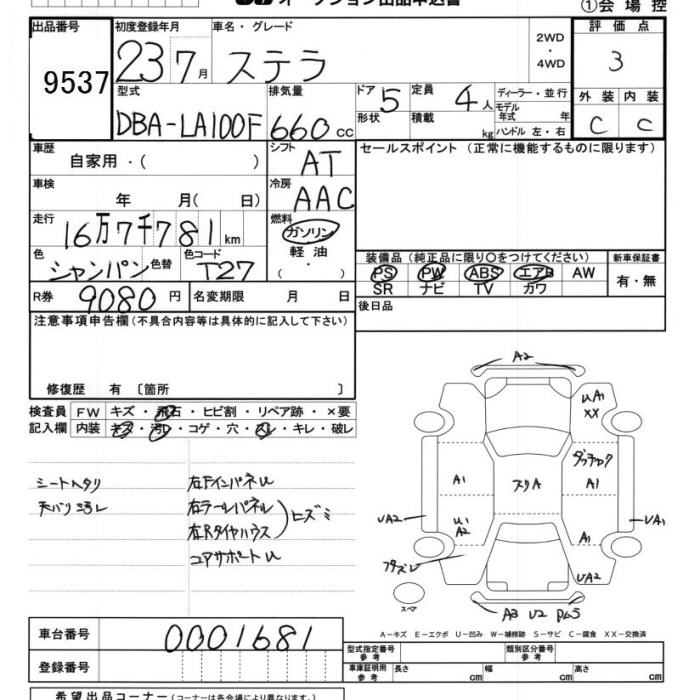 オークション出品申込書 ①会場控
出品番号 初度登録年月 車名・グレード 2WD・4WD 評価点
9537 23 7月 ステラ 3
型式 排気量 ドア 5 定員 4人 ディーラー・並行 外装 内装
DBA-LA100F 660cc 形状 積載 kg モデル年式 年 ハンドル 左・右 C C
車歴 自家用・( ) シフト AT セールスポイント(正常に機能するものに限ります)
車検 年 月( 日) 冷房 AAC
走行 16万7千781km 燃料 ガソリン
軽油
( ・ )
色 シャンパン 色替 色コード T27 装備品(純正品に限り○をつけてください) 新車保証書
PS PW ABS エアB AW 有・無
SR ナビ TV カワ
R券 9080円 名変期限 月 日 後日品
注意事項申告欄(不具合内容等は具体的に記入して下さい)
修復歴 有〔箇所 〕
検査員 FW キズ・飛石・ヒビ割・リペア跡・×要
記入欄 内装 キズ・汚レ・コゲ・穴・スレ・キレ・破レ
シートヘタリ 右Fインパネu
天バリ汚レ 右テールパネル
右Rタイヤハウス ヒズミ
コアサポートu
A2
UA1
XX
ダッチャク
A1 スリA A1
UA2 U1 UA1
A2 A1
フタズレ UA2
スペア A3 U2
A-キズ E-エクボ U-凹み W-補修跡 S-サビ C-腐食 XX-交換済
車台番号 0001681 型式指定番号 参考 類別区分番号 参考
登録番号 車庫証明用 参考 長さ cm 幅 cm 高さ cm
希望出品コーナー(コーナーは各会場により異なります。)